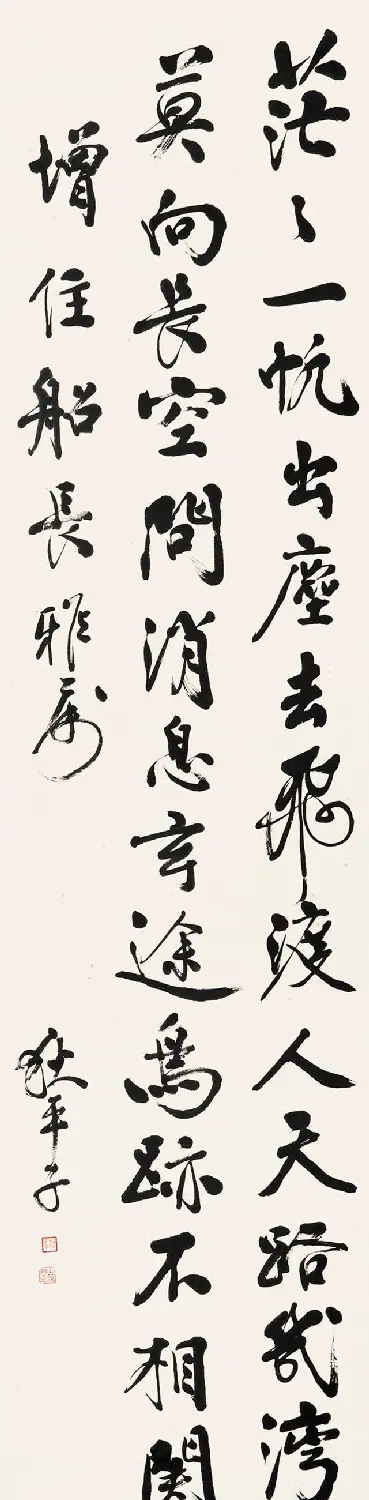 茫々一帆出塵去飛渡人天路幾灣
莫向長空問消息玄途鳥跡不相關
增住船長雅屬
狄平子